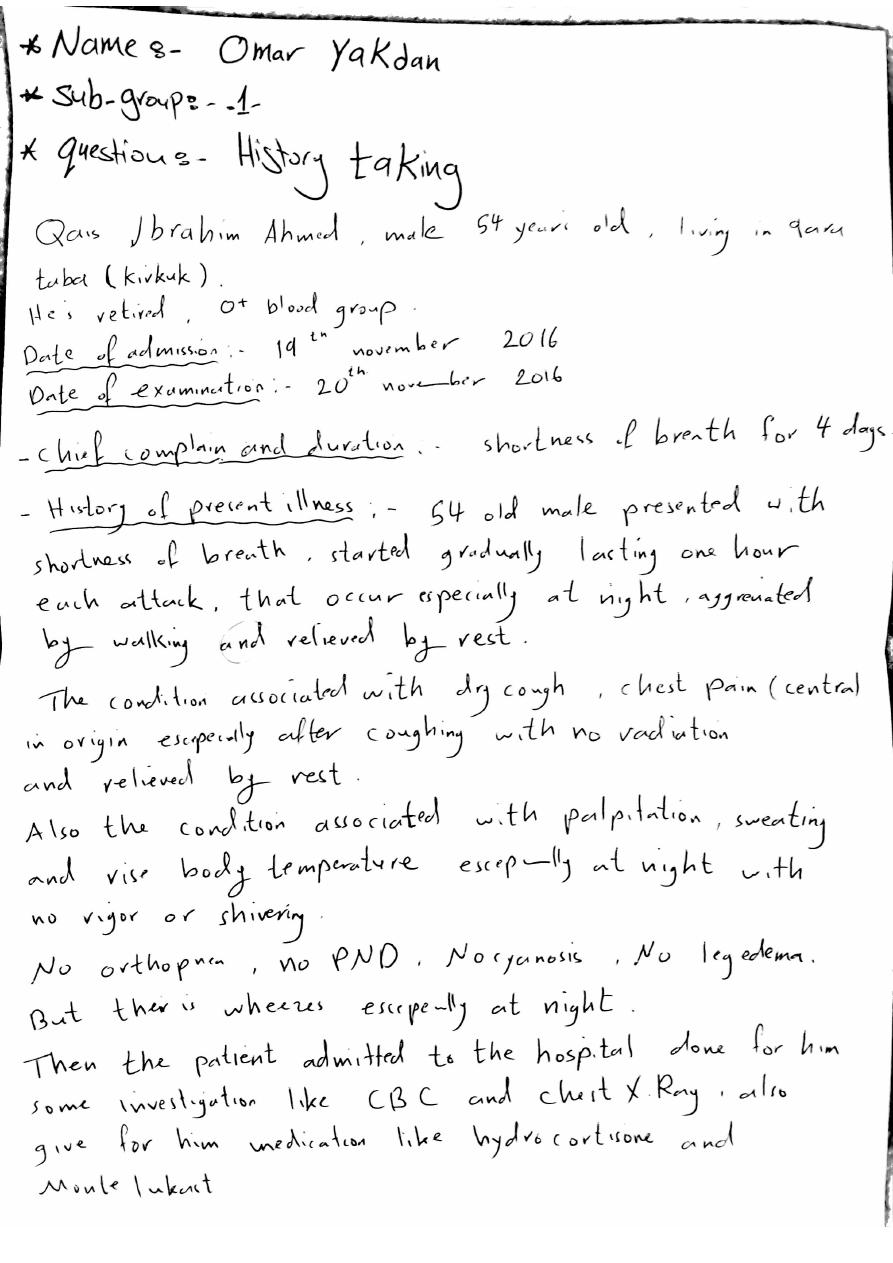 * Name :- Omar Yakdan
* Sub-group :- -1-
* question :- History taking
Qais Ibrahim Ahmed, male 54 years old, living in qara
taba (kirkuk).
He's retired, O+ blood group.
Date of admission :- 19th november 2016
Date of examination :- 20th november 2016
- Chief complain and duration :- shortness of breath for 4 days
- History of present illness :- 54 old male presented with
shortness of breath, started gradually lasting one hour
each attack, that occur especially at night, aggrevated
by walking and relieved by rest.
The condition associated with dry cough, chest pain (central
in origin escpecally after coughing with no radiation
and relieved by rest.
Also the condition associated with palpitation, sweating
and rise body temperature escepally at night with
no rigor or shivering.
No orthopnea, no PND, No cyanosis, No leg edema.
But ther is wheezes escepeally at night.
Then the patient admitted to the hospital done for him
some investigation like CBC and chest X.Ray, also
give for him medication like hydrocortisone and
Montelukast